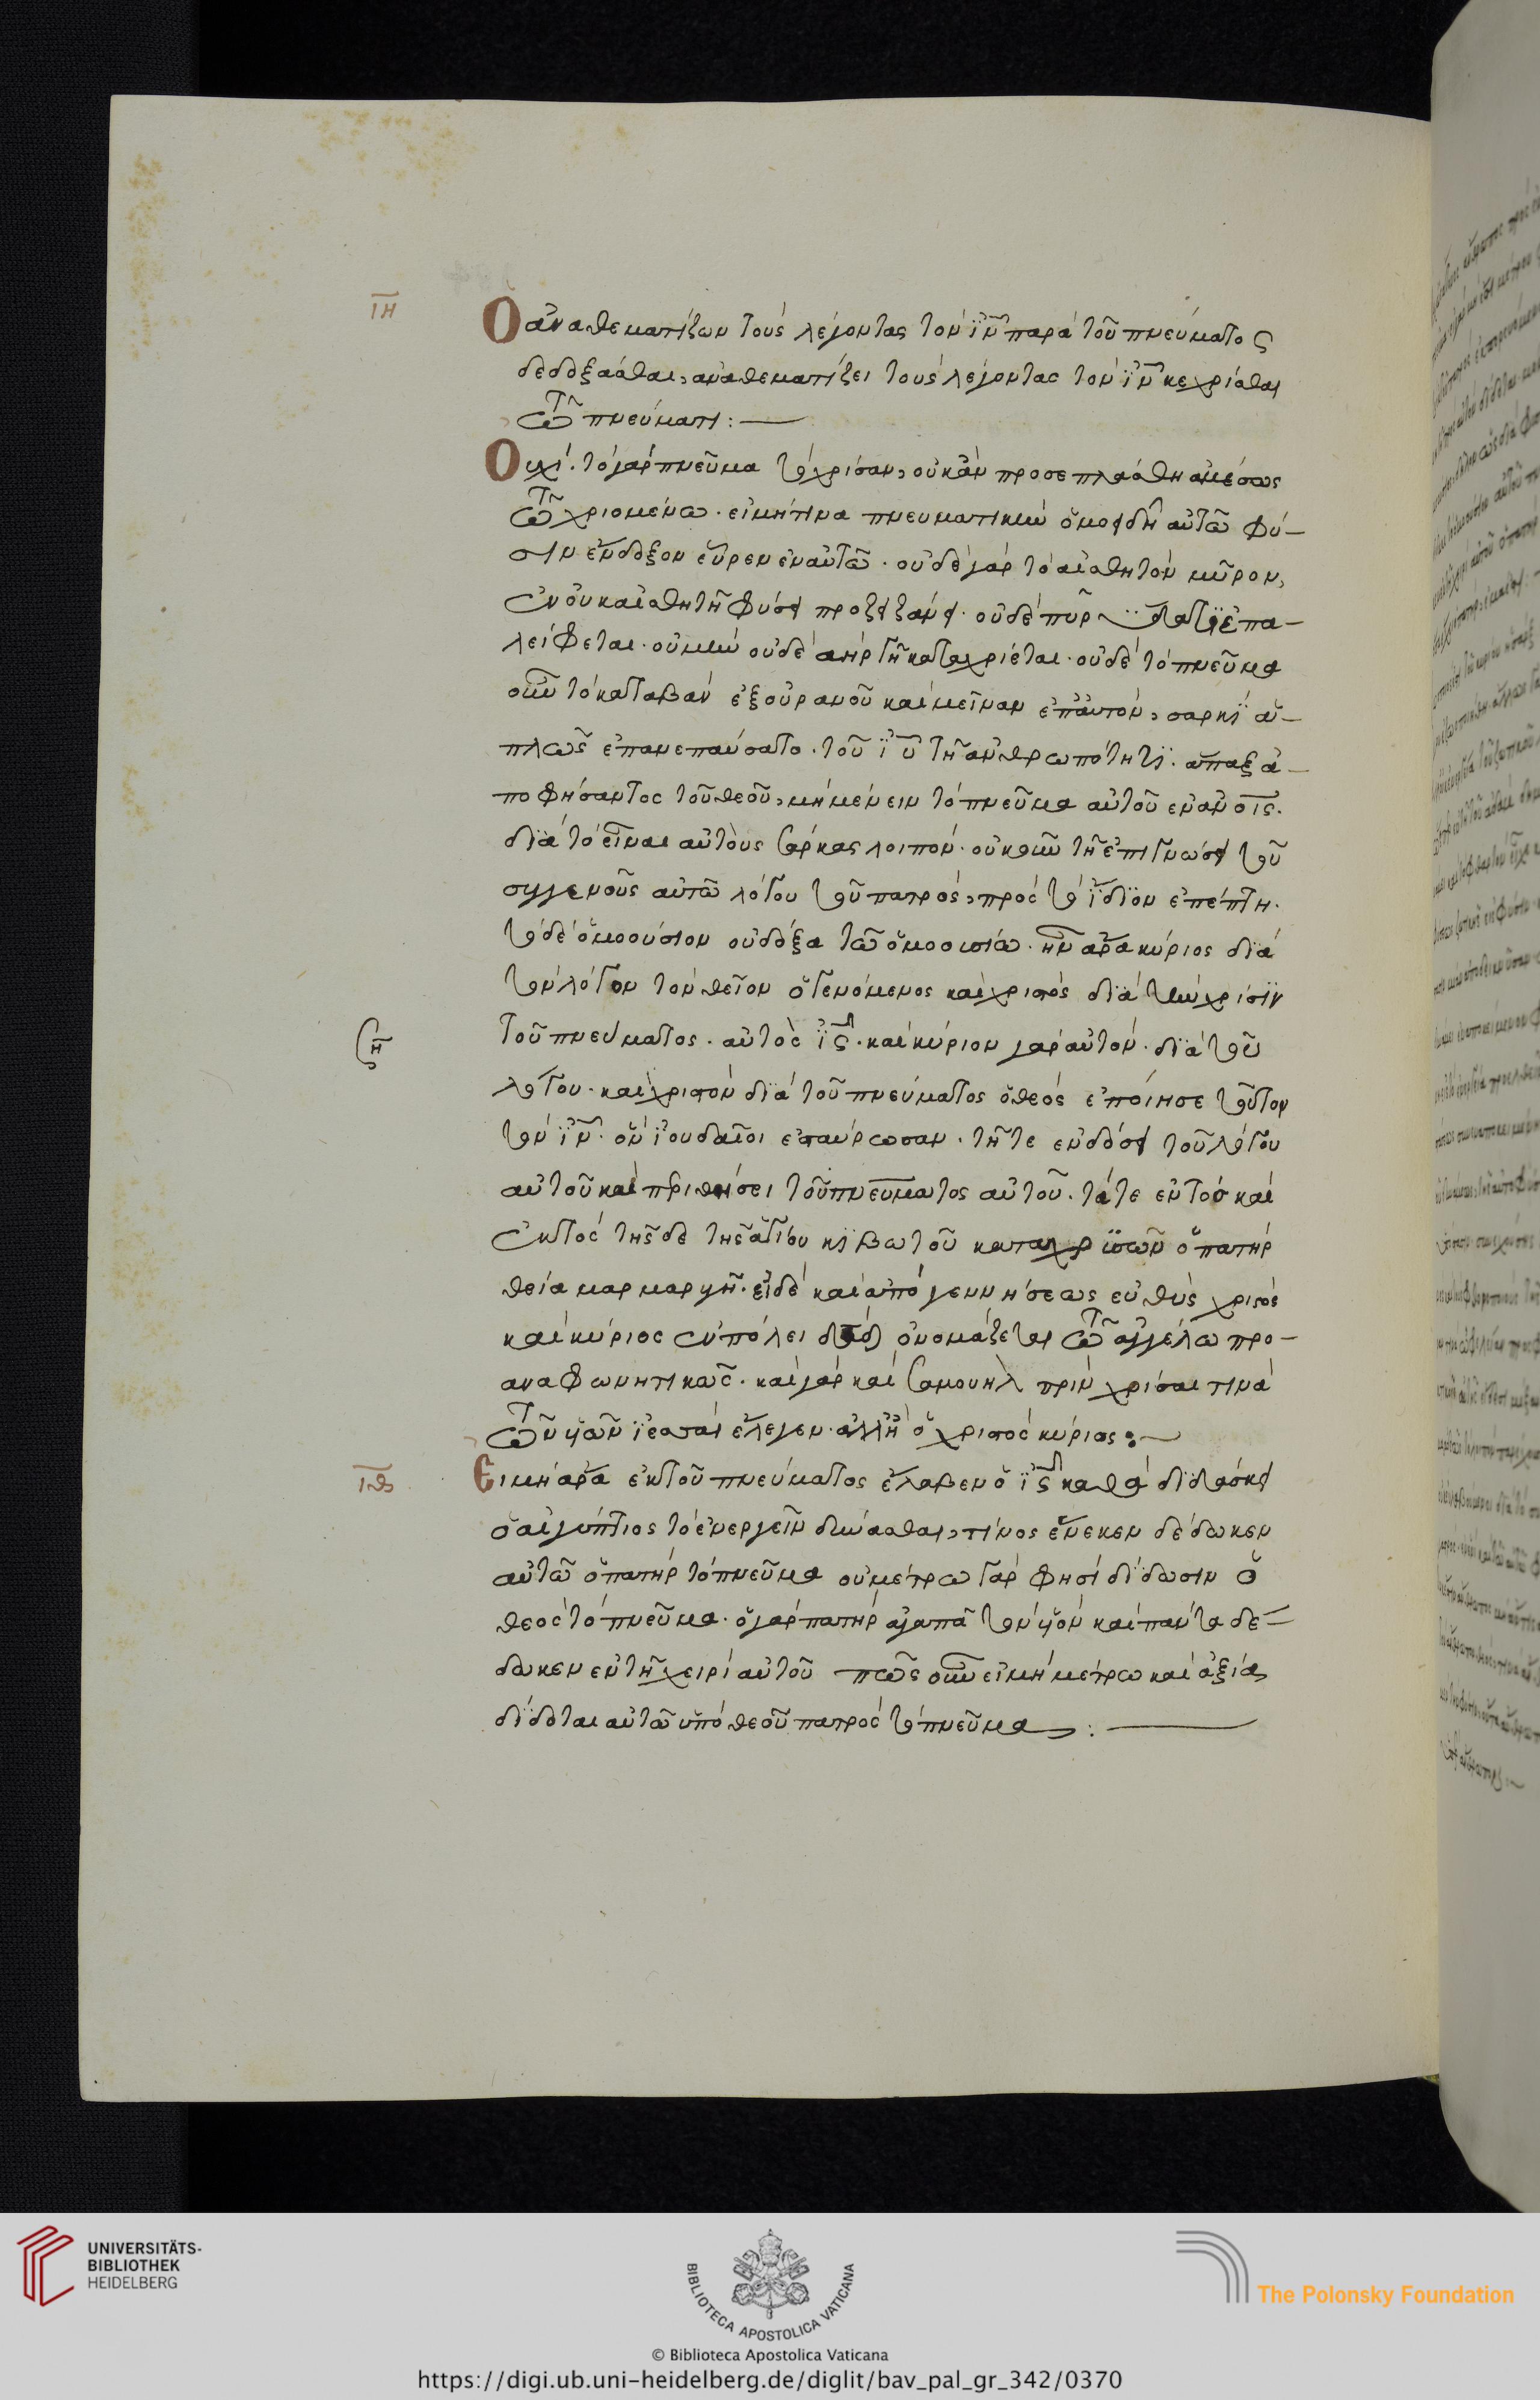 ιη
Ὁ ἀναθεματίζων τοὺς λέγοντας τὸν ἰν παρὰ τοῦ πνεύματος
δεδοξάσθαι, ἀναθεματίζει τοὺς λέγοντας τὸν ἰν κεχρίσθαι
τῶ πνεύματι :—
Οὐχί· τὸ γὰρ πνεῦμα τὸ χρίσαν, οὐκ ἂν προσεπλάσθη ἀμέσως
τῶ χριομένω· εἰ μή τινα πνευματικὴν ὁμοειδῆ αὐτῶ φύ–
σιν ἔνδοξον εὗρεν ἐν αὐτῶ· οὐδὲ γὰρ τὸ αἰσθητὸν μῦρον,
ἐν οὐκ αἰσθητῆ φύσει προσιζάνει· οὐδὲ πῦρ ὕδατι ἐπα–
λείφεται· οὐ μὴν οὐδὲ ἀὴρ γῆ καταχρίεται· οὐδὲ τὸ πνεῦμα
οὖν τὸ καταβὰν ἐξ οὐρανοῦ καὶ μεῖναν ἐπ αὐτὸν, σαρκὶ ἁ–
πλῶς ἐπανεπαύσατο· τοῦ ἰυ τῆ ἀνθρωπότητι· ἅπαξ ἀ–
ποφήσαντος τοῦ θεοῦ, μὴ μένειν τὸ πνεῦμα αὐτοῦ ἐν ἀνοις·
διὰ τὸ εἶναι αὐτοὺς σάρκας λοιπὸν· οὐκοῦν τῆ ἐπιγνώσει τοῦ
συγγενοῦς αὐτῶ λόγου τοῦ πατρὸς, πρὸς τὸ ἴδιον ἐπέπτη·
τὸ δὲ ὁμοούσιον οὐ δόξα τῶ ὁμοουσίω· ἦν ἄρα κύριος διὰ
τὸν λόγον τὸν θεῖον ὁ γενόμενος καὶ χριστὸς διὰ τὴν χρίσιν
τοῦ πνεύματος· αὐτὸς ἰς· καὶ κύριον γὰρ αὐτὸν· διὰ τοῦ
λόγου· καὶ χριστὸν διὰ τοῦ πνεύματος ὁ θεὸς ἐποίησε τοῦτον
τὸν ἰν· ὃν ἰουδαῖοι ἐσταύρωσαν· τῆ τε ἐνδόσει τοῦ λόγου
αὐτοῦ καὶ περιθήσει τοῦ πνεύματος αὐτοῦ· τά τε ἐντὸς καὶ
ἐκτὸς τῆσδε τῆς ἁγίου κιβωτοῦ καταχρυσῶν ὁ πατὴρ
θεία μαρμαρυγῆ· εἰ δὲ καὶ ἀπὸ γεννήσεως εὐθὺς χριστὸς
καὶ κύριος ἐν πόλει δαδ ὀνομάζεται τῶ ἀγγέλω προ–
αναφωνητικῶς· καὶ γὰρ καὶ σαμουὴλ πρὶν χρίσαι τινὰ
τῶν υἱῶν ἰεσσαὶ ἔλεγεν· ἀλλ ἢ ὁ χριστὸς κύριος :—
ιθ
Εἰ μὴ ἄρα ἐκ τοῦ πνεύματος ἔλαβεν ὁ ἰς καθὰ διδάσκει
ὁ αἰγύπτιος τὸ ἐνεργεῖν δύνασθαι, τίνος ἕνεκεν δέδωκεν
αὐτῶ ὁ πατὴρ τὸ πνεῦμα οὐ μέτρω γάρ φησὶ δίδωσιν ὁ
θεὸς τὸ πνεῦμα· ὁ γὰρ πατὴρ ἀγαπᾶ τὸν υἱὸν καὶ πάντα δέ–
δωκεν ἐν τῆ χειρὶ αὐτοῦ πῶς οὖν εἰ μὴ μέτρω καὶ ἀξία
δίδοται αὐτῶ ὑπὸ θεοῦ πατρὸς τὸ πνεῦμα :—
UNIVERSITÄTS-
BIBLIOTHEK
HEIDELBERG
BIBLIOTECA APOSTOLICA VATICANA
The Polonsky Foundation
© Biblioteca Apostolica Vaticana
https://digi.ub.uni-heidelberg.de/diglit/bav_pal_gr_342/0370